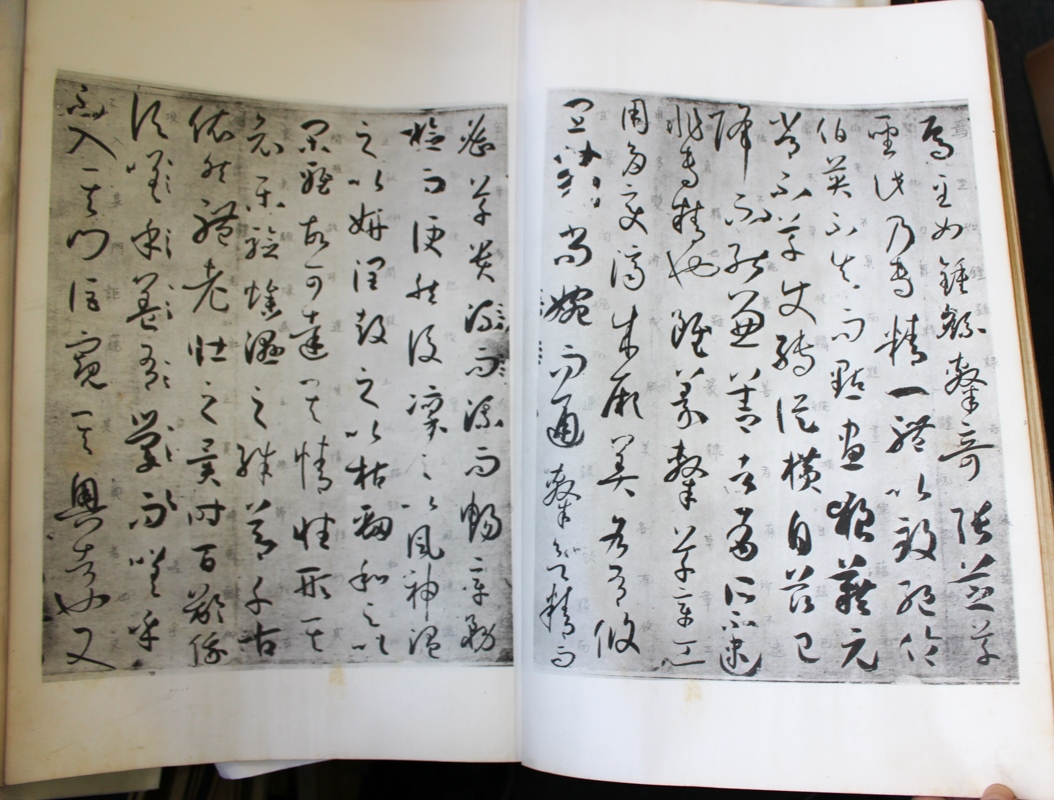 焉至如鍾繇隸奇張芝草
聖此乃專精一體以致絕倫
伯英不真而點畫狼藉元
常不草使轉縱橫自茲已
降不能兼善者有所不逮
非專精也雖篆隸草章工
用多變濟成厥美各有攸
宜篆尚婉而通隸欲精而
密草貴流而流而暢章務
檢而便然後凜之以風神溫
之以妍潤鼓之以枯勁和之以
閑雅故可達其情性形其
哀樂驗燥濕之殊節千古
依然體老壯之異時百齡俄
頃嗟乎蓋有學而嗟乎
不入其門詎窺其奧者也又